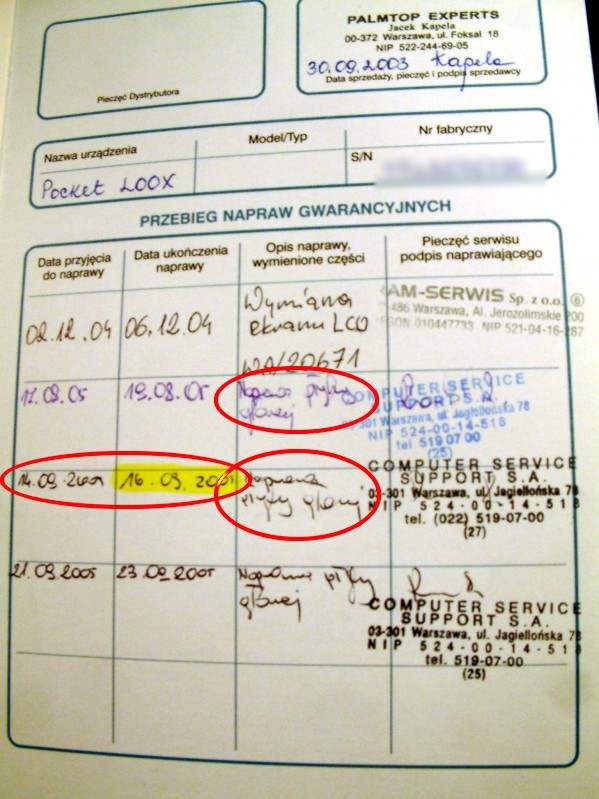 PALMTOP EXPERTS
Jacek Kapela
00-372 Warszawa, ul. Foksal 18
NIP 522-244-69-05
30.09.2003 Kapela
Data sprzedaży, pieczęć i podpis sprzedawcy
Pieczęć Dystrybutora
Nazwa urządzenia
Model/Typ
Nr fabryczny
Pocket LOOX
S/N
PRZEBIEG NAPRAW GWARANCYJNYCH
Data przyjęcia
do naprawy
Data ukończenia
naprawy
Opis naprawy,
wymienione części
Pieczęć serwisu
podpis naprawiającego
02.12.04
06.12.04
Wymiana
ekranu LCD
WA/20671
AM-SERWIS Sp. z o.o. 6
-486 Warszawa, Al. Jerozolimskie 200
GON 010447733 NIP 521-04-16-287
17.08.05
19.08.05
Naprawa płyty
głównej
COMPUTER SERVICE
SUPPORT S.A.
03-301 Warszawa, ul. Jagiellońska 78
NIP 524-00-14-518
tel. 519 07 00
(25)
14.09.2005
16.09.2005
Naprawa
płyty głównej
COMPUTER SERVICE
SUPPORT S.A.
03-301 Warszawa, ul. Jagiellońska 78
NIP 524-00-14-518
tel. (022) 519-07-00
(27)
21.09.2005
23.09.2005
Naprawa płyty
głównej
COMPUTER SERVICE
SUPPORT S.A.
03-301 Warszawa, ul. Jagiellońska 78
NIP 524-00-14-518
tel. 519-07-00
(25)